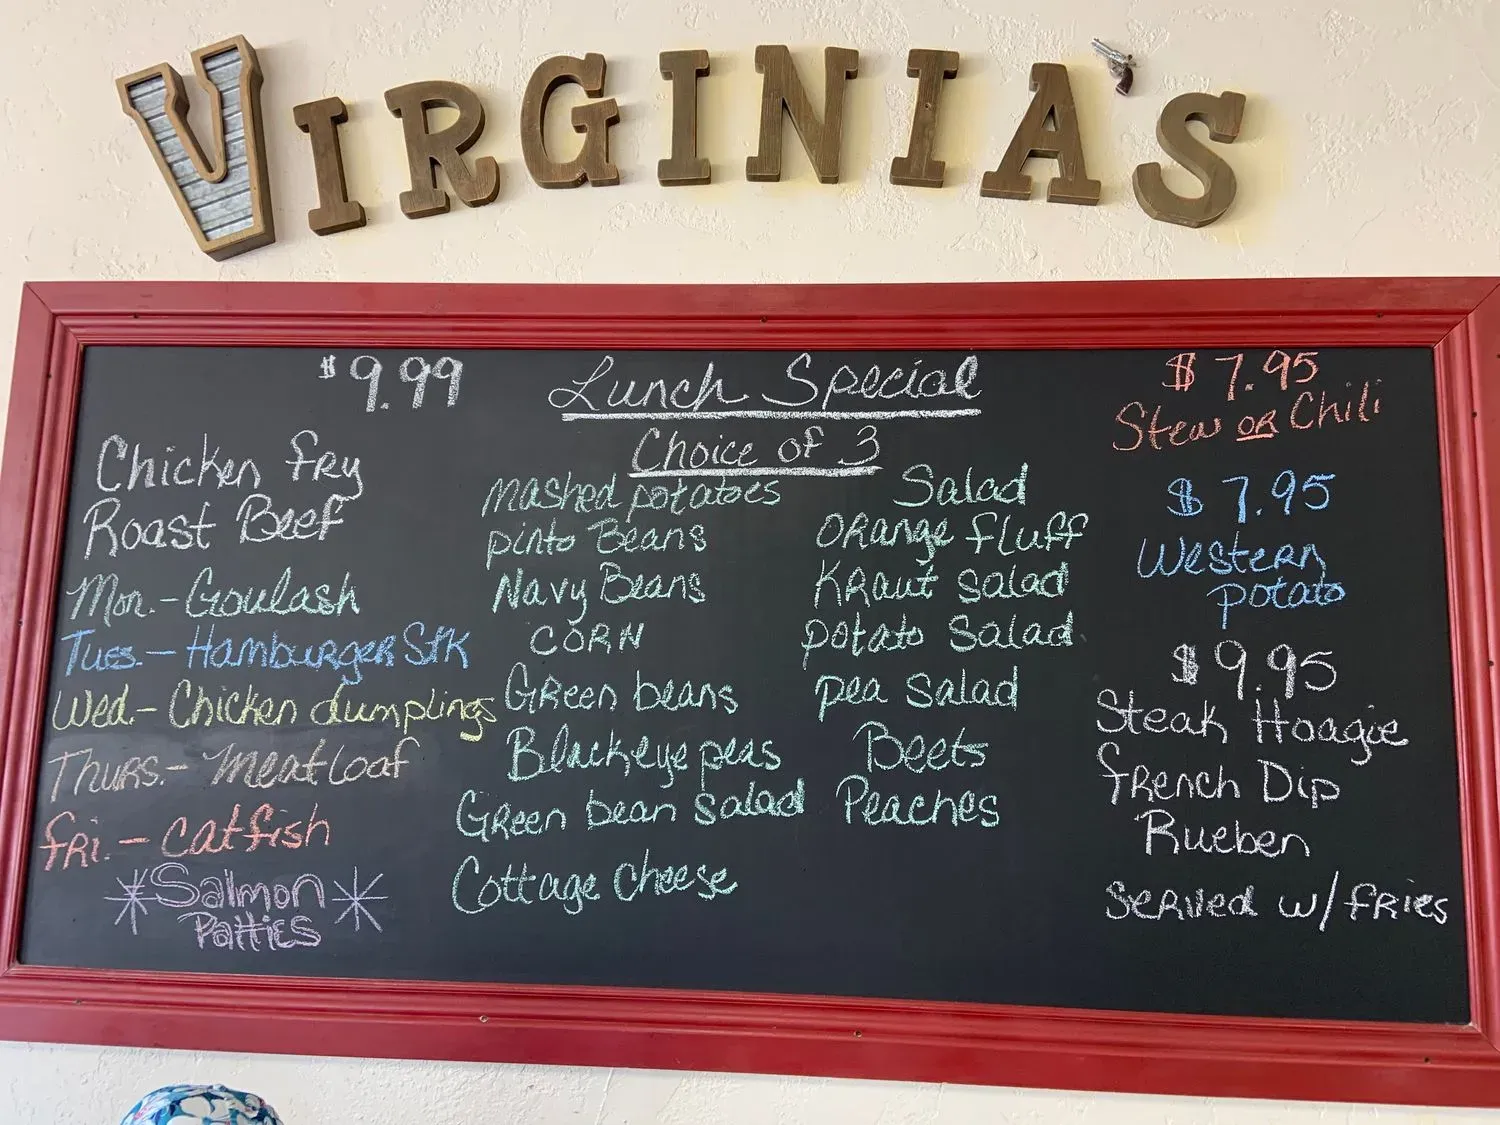 VIRGINIA'S
$9.99
Lunch Special
$7.95
Stew OR Chili
Choice of 3
Chicken fry
Roast Beef
Mon.-Goulash
Tues.-Hamburger Stk
Wed.-Chicken dumplings
Thurs.-Meat Loaf
fri.-catfish
*Salmon
Patties*
mashed potatoes
pinto Beans
Navy Beans
CORN
Green beans
Blackeye peas
Green bean salad
Cottage cheese
Salad
ORange fluff
Kraut salad
potato Salad
pea salad
Beets
Peaches
$7.95
Western
potato
$9.95
Steak Hoagie
french Dip
Rueben
served w/fries